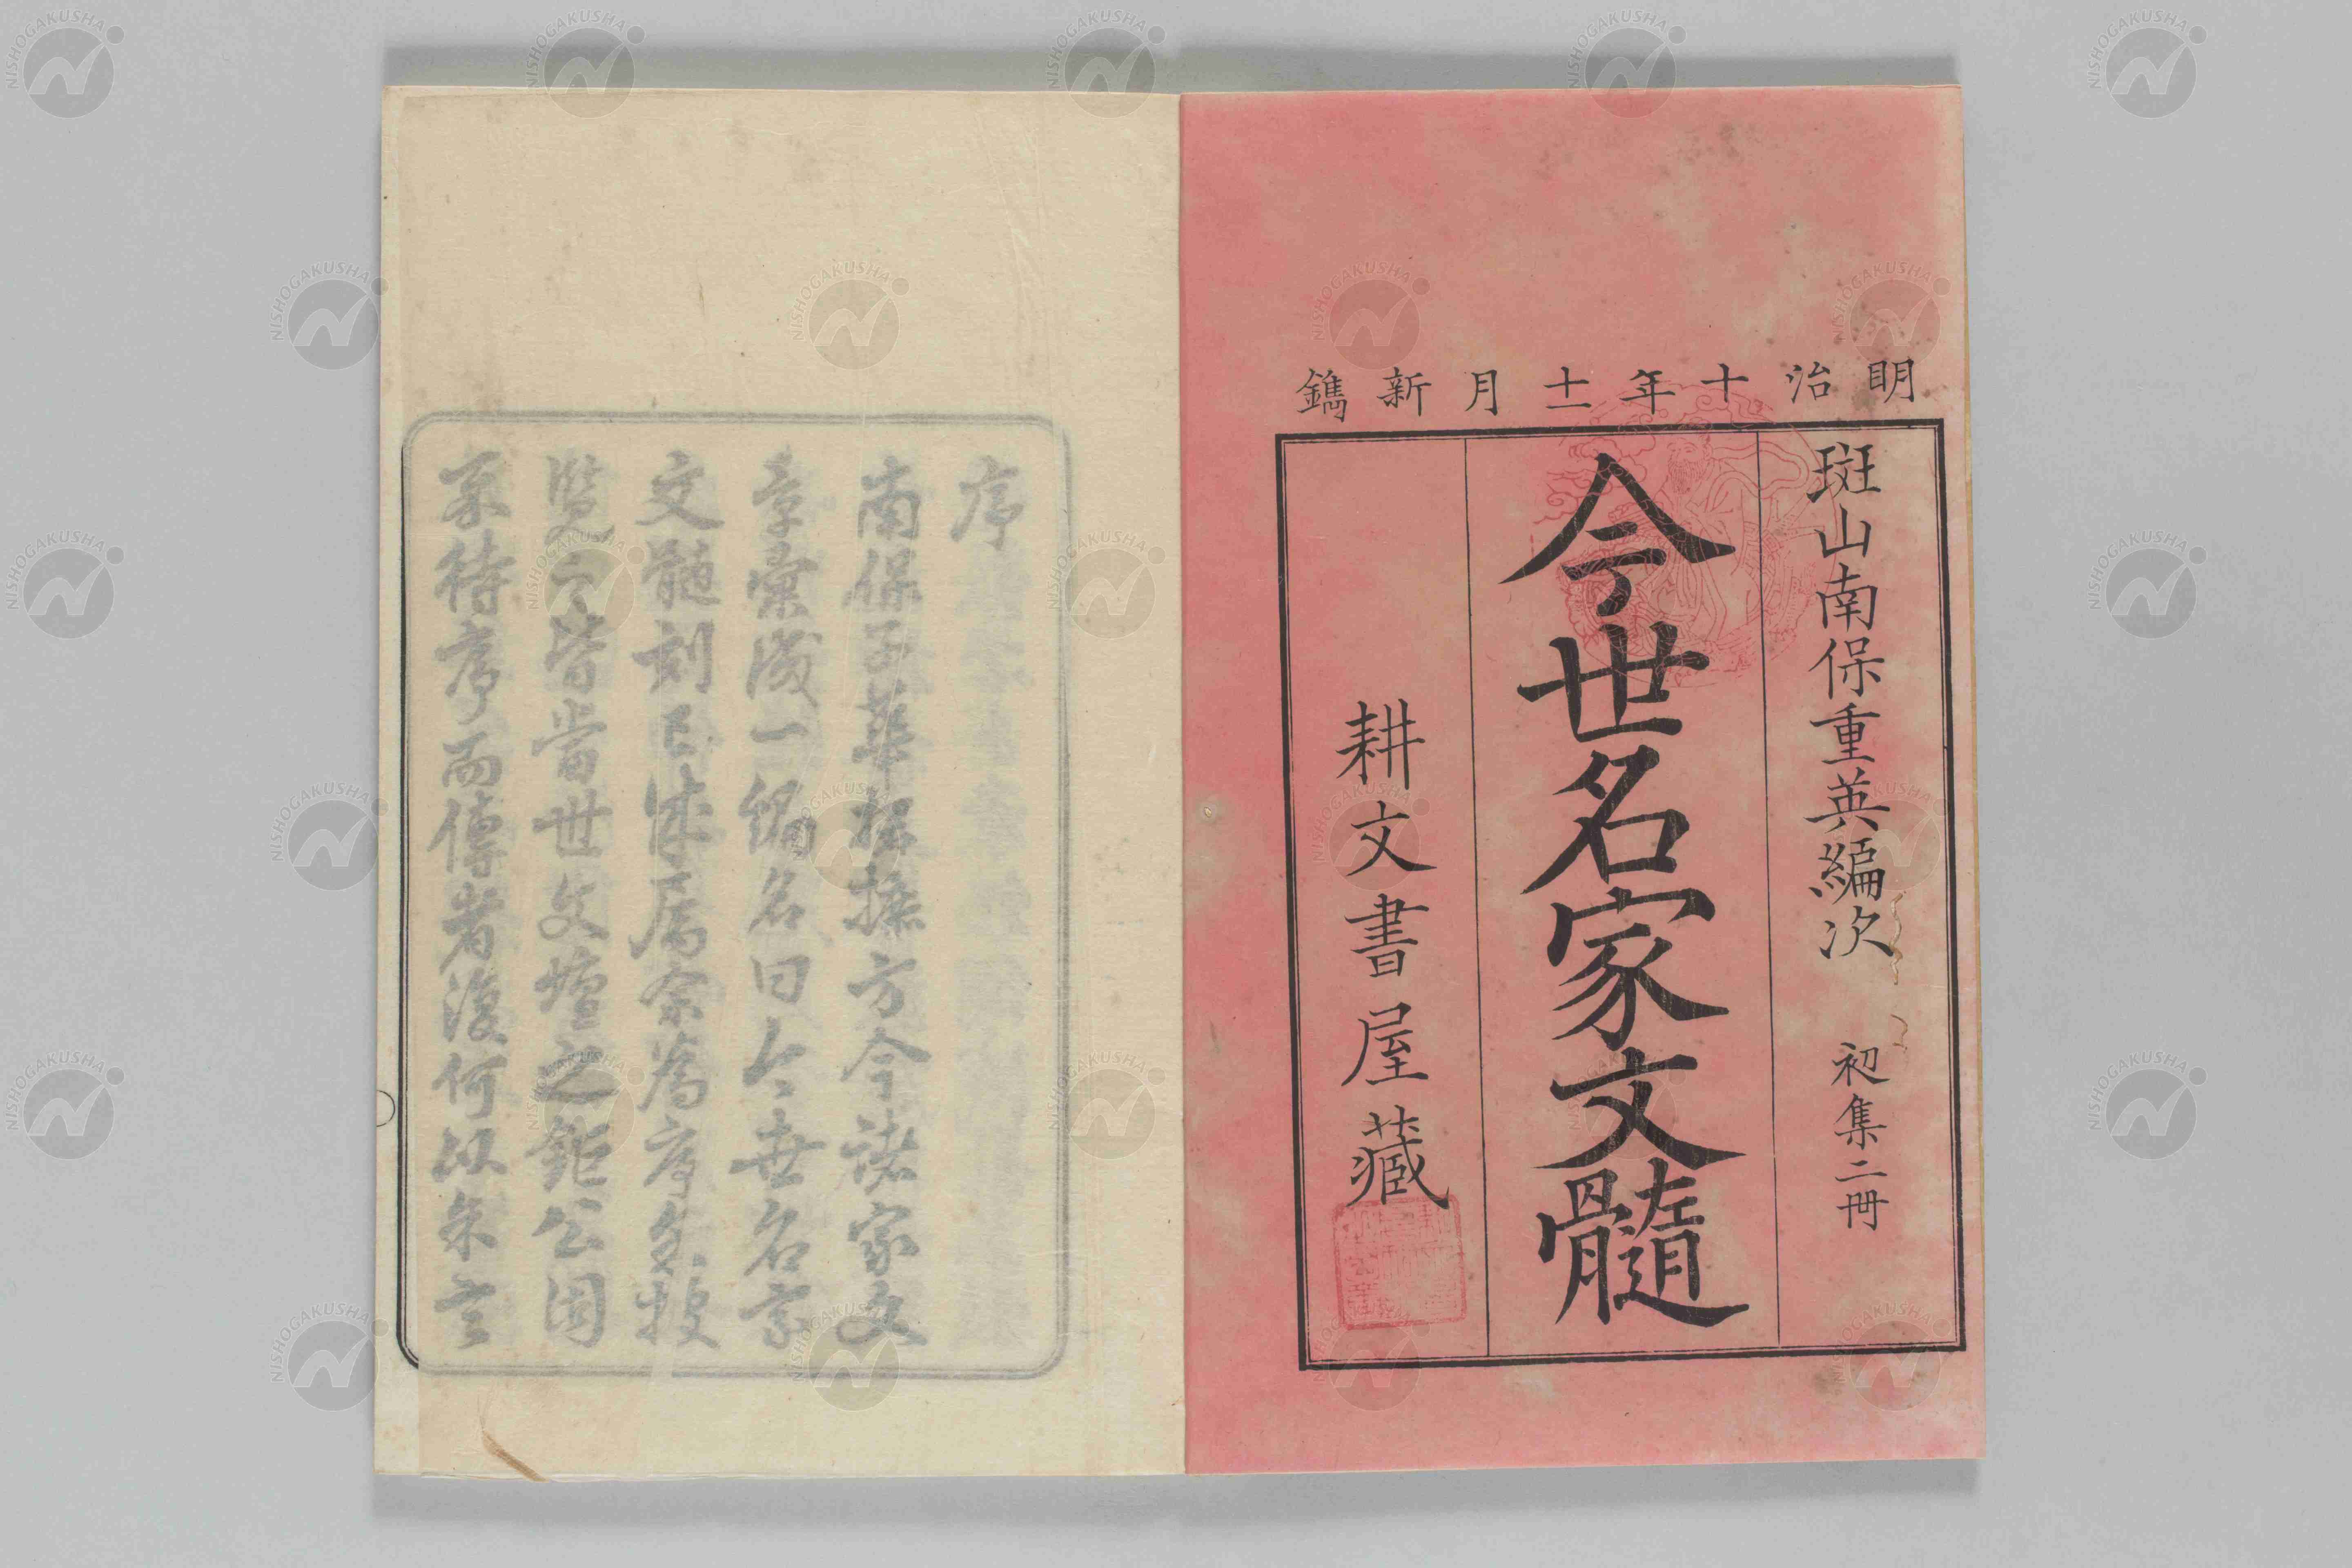 明治十年十一月新鐫
斑山南保重英編次 初集二冊
今世名家文髓
耕文書屋藏
序
南保子華 方今諸家文
章彙成一編名曰今世名家
文髓刻已 屬余為序余披
覽之皆當世文壇之鉅公固
待序而傳者復何以余言
NISHOGAKUSHA